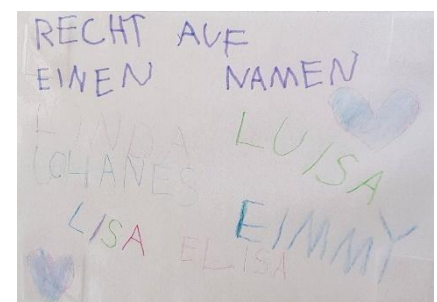 RECHT AUF
EINEN NAMEN
LINDA
LUISA
LOHANES
LISA
ELISA
EIMMY